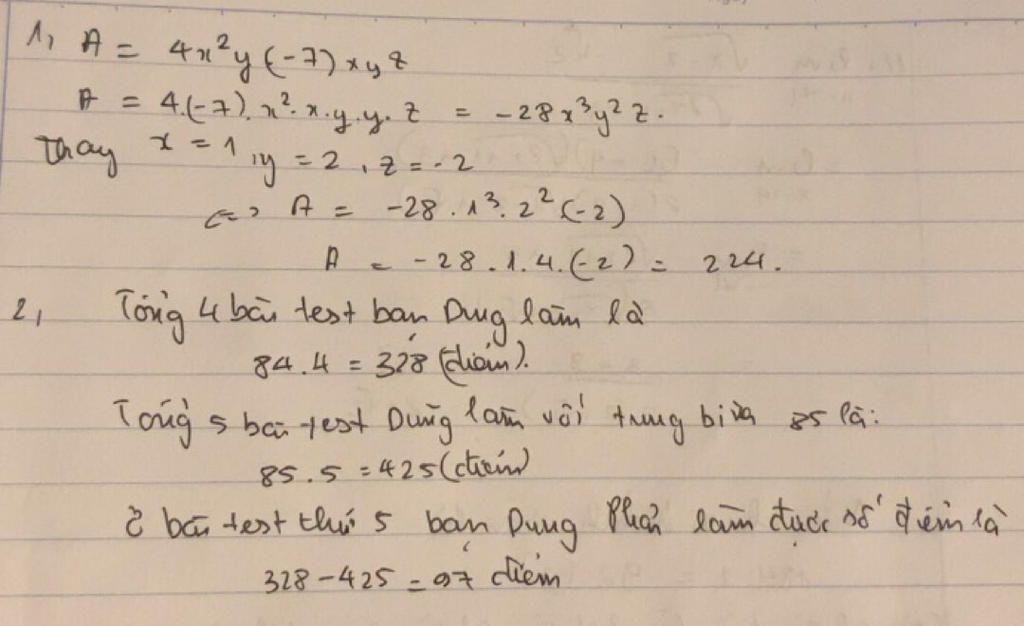 1, A = 4x²y(-7)xyz
A = 4.(-7).x².x.y.y.z = -28x³y²z.
Thay x = 1, y = 2, z = -2
<=> A = -28.1³.2²(-2)
A = -28.1.4.(-2) = 224.
2, Tổng 4 bài test bạn Dung làm là
84.4 = 328 (điểm).
Tổng 5 bài test Dũng làm với trung bình 85 là:
85.5 = 425 (điểm)
ở bài test thứ 5 bạn Dung phải làm được số điểm là
328-425 = 97 điểm